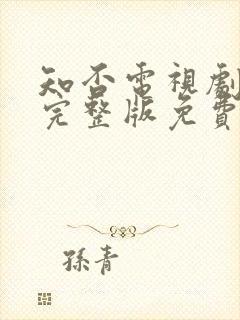 知否電視劇
完整版免費
孫青